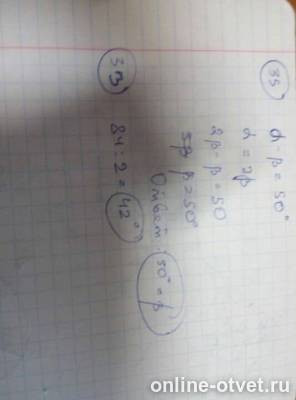 35
α - β = 50°
α = 2β
2β - β = 50
β = 50°
Ответ: 50° = β
33
84 : 2 = 42°
online-otvet.ru